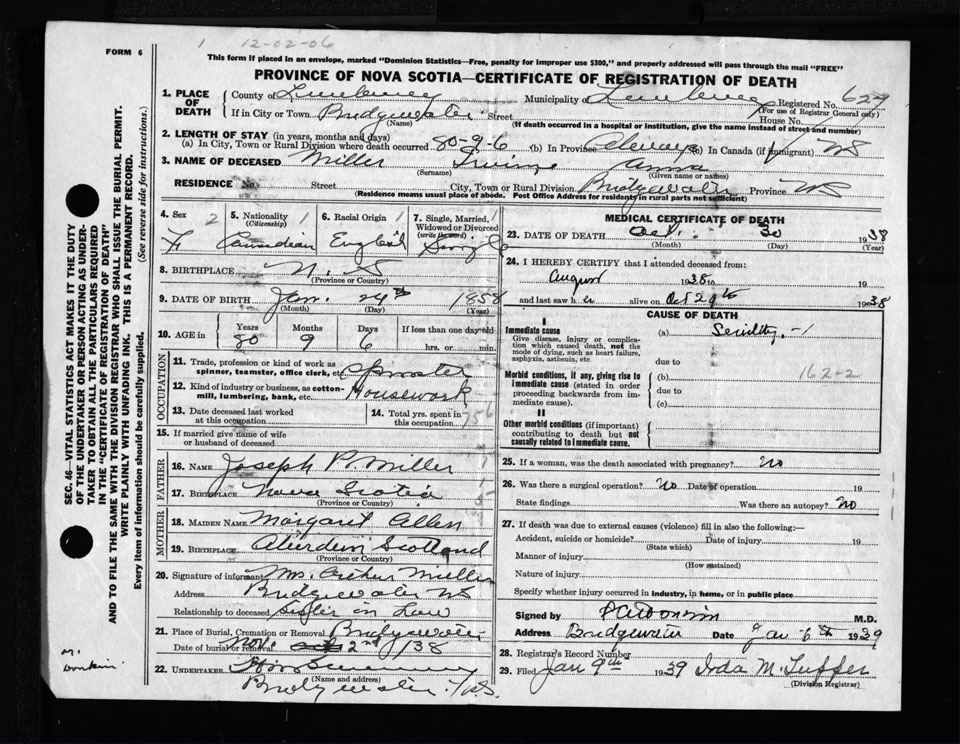 1 12-02-06
FORM 6
This form if placed in an envelope, marked "Dominion Statistics—Free, penalty for improper use $300," and properly addressed will pass through the mail "FREE"
PROVINCE OF NOVA SCOTIA—CERTIFICATE OF REGISTRATION OF DEATH
SEC. 46—VITAL STATISTICS ACT MAKES IT THE DUTY
OF THE UNDERTAKER OR PERSON ACTING AS UNDER-
TAKER TO OBTAIN ALL THE PARTICULARS REQUIRED
IN THE "CERTIFICATE OF REGISTRATION OF DEATH"
AND TO FILE THE SAME WITH THE DIVISION REGISTRAR WHO SHALL ISSUE THE BURIAL PERMIT.
WRITE PLAINLY WITH UNFADING INK. THIS IS A PERMANENT RECORD.
Every item of information should be carefully supplied. (See reverse side for instructions.)
1. PLACE OF DEATH
County of Lunenburg Municipality of Lunenburg Registered No. 627
(For use of Registrar General only)
If in City or Town Bridgewater Street House No.
(Name) (If death occurred in a hospital or institution, give the name instead of street and number)
2. LENGTH OF STAY (in years, months and days)
(a) In City, Town or Rural Division where death occurred 80-9-6 (b) In Province Always (c) In Canada (if immigrant) NS
3. NAME OF DECEASED Miller Anna
(Surname) (Given name or names)
RESIDENCE No. Street City, Town or Rural Division Bridgewater Province NS
(Residence means usual place of abode. Post Office Address for residents in rural parts not sufficient)
4. Sex 2 5. Nationality 1 6. Racial Origin 1 7. Single, Married, 1
(Citizenship) Widowed or Divorced
(write the word)
F Canadian English Single
8. BIRTHPLACE N. S
(Province or Country)
9. DATE OF BIRTH Jan. 24th 1858
(Month) (Day) (Year)
10. AGE in Years Months Days If less than one day old
80 9 6 hrs. or min.
OCCUPATION
11. Trade, profession or kind of work as
spinner, teamster, office clerk, etc. Spinster
12. Kind of industry or business, as cotton-
mill, lumbering, bank, etc. Housework
13. Date deceased last worked
at this occupation
14. Total yrs. spent in
this occupation 756
15. If married give name of wife
or husband of deceased
FATHER
16. NAME Joseph P. Miller
17. BIRTHPLACE Nova Scotia
(Province or Country)
MOTHER
18. MAIDEN NAME Margaret Allen
19. BIRTHPLACE Aberdeen Scotland
(Province or Country)
20. Signature of informant Mrs. Miller
Address Bridgewater NS
Relationship to deceased Sister in Law
21. Place of Burial, Cremation or Removal Bridgewater
Date of burial or removal Nov 2nd /38
22. UNDERTAKER
(Name and address)
Bridgewater, N.S.
MEDICAL CERTIFICATE OF DEATH
23. DATE OF DEATH Oct. 30 1938
(Month) (Day) (Year)
24. I HEREBY CERTIFY that I attended deceased from:
August 1938 to 19
and last saw h er alive on Oct 29th 1938
CAUSE OF DEATH
I
Immediate cause (a) Senility -1
Give disease, injury or complica-
tion which caused death, not the
mode of dying, such as heart failure,
asphyxia, asthenia, etc
due to
Morbid conditions, if any, giving rise to
immediate cause (stated in order
proceeding backwards from im-
mediate cause).
(b) 162-2
due to
(c)
II
Other morbid conditions (if important)
contributing to death but not
causally related to immediate cause.
25. If a woman, was the death associated with pregnancy? No
26. Was there a surgical operation? No Date of operation 19
State findings Was there an autopsy? No
27. If death was due to external causes (violence) fill in also the following:—
Accident, suicide or homicide? Date of injury 19
(State which)
Manner of injury
(How sustained)
Nature of injury
Specify whether injury occurred in industry, in home, or in public place
Signed by M.D.
Address Bridgewater Date Jan 6th 1939
28. Registrar's Record Number
29. Filed Jan 9th 1939 Ida M. Tupper
(Division Registrar)